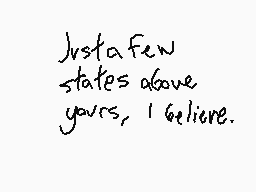 Just a few
states above
yours, I believe.